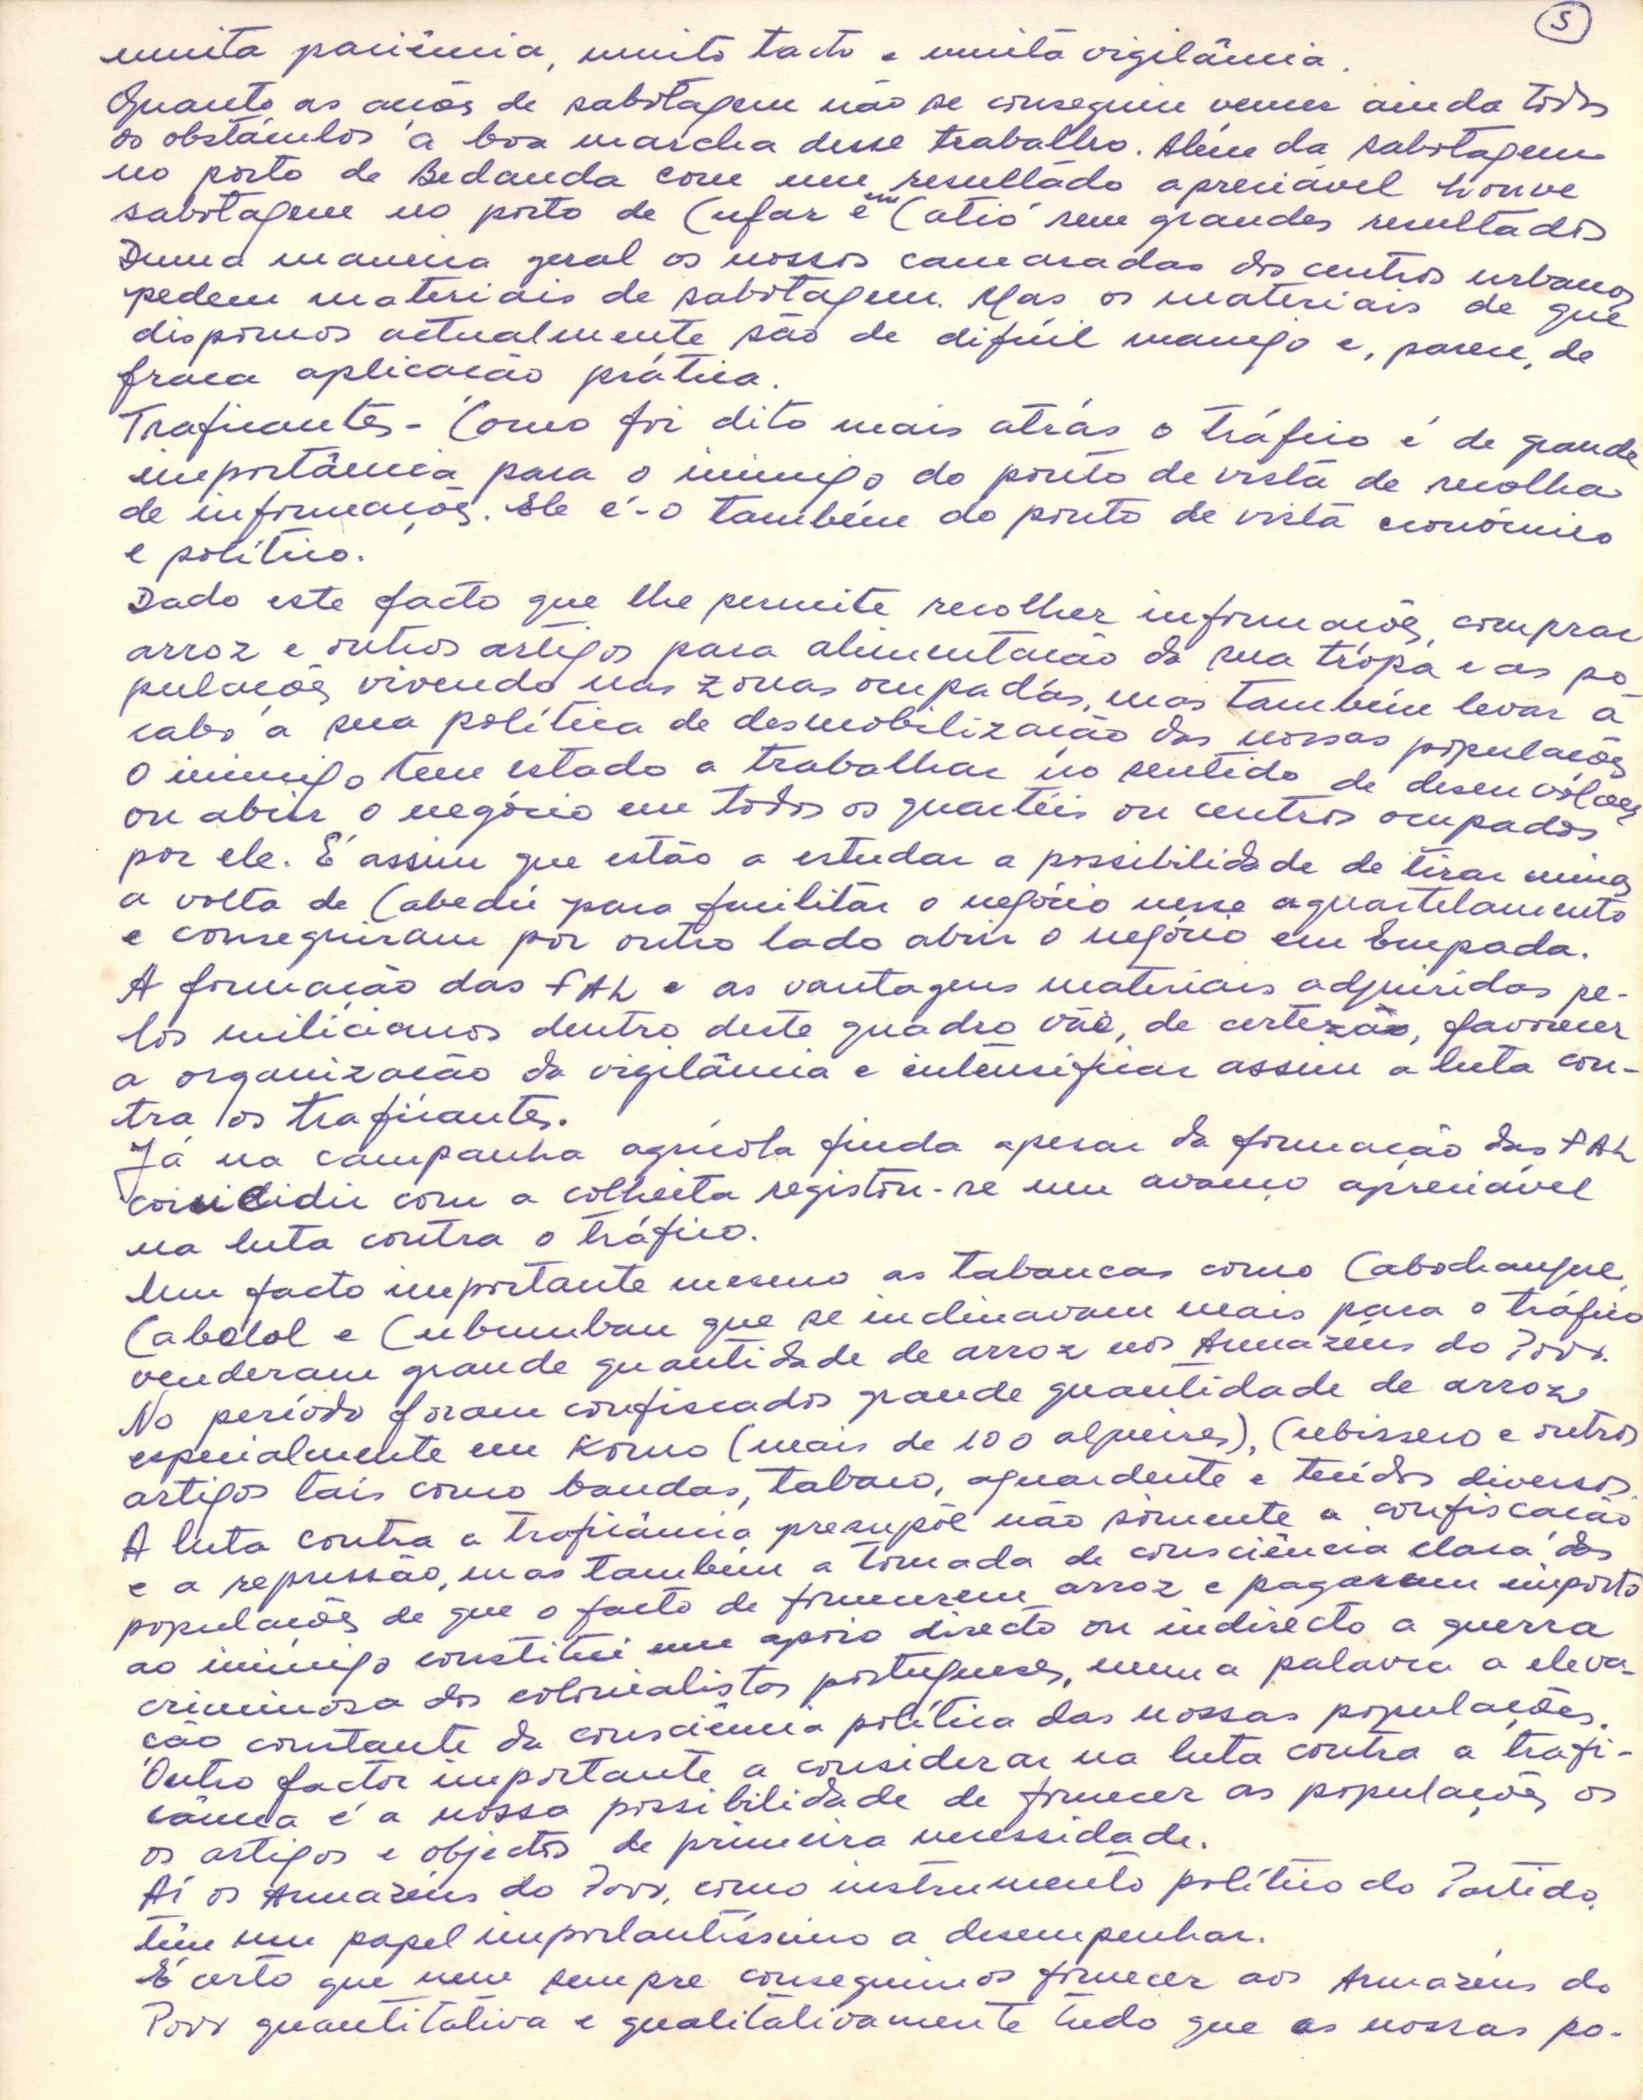 5
muita paciência, muito tacto e muita vigilância.
Quanto as acões de sabotagem não se conseguiu vencer ainda todos
os obstáculos à boa marcha desse trabalho. Além da sabotagem
no porto de Bedanda com um resultado apreciável houve
sabotagem no porto de Cufar e em Catió sem grandes resultados
Duma maneira geral os nossos camaradas dos centros urbanos
pedem materiais de sabotagem. Mas os materiais de que
dispomos actualmente são de difícil manejo e, parece, de
fraca aplicacão prática.
Traficantes - Como foi dito mais atrás o tráfico é de grande
importância para o inimigo do ponto de vista de recolha
de informacões. Ele é-o também do ponto de vista económico
e político.
Dado este facto que lhe permite recolher informacões, comprar
arroz e outros artigos para alimentacão da sua tropa e as po-
pulacões vivendo nas zonas ocupadas, mas também levar à
cabo a sua política de desmobilizacão das nossas populacões
o inimigo tem estado a trabalhar no sentido de desenvolver
ou abrir o negócio em todos os quartéis ou centros ocupados
por ele. É assim que estão a estudar a possibilidade de tirar minas
a volta de Cabedú para facilitar o negócio nesse aquartelamento
e conseguiram por outro lado abrir o negócio em Empada.
A formacão das FAL e as vantagens materiais adquiridas pe-
los milicianos dentro deste quadro vão, de certeza, favorecer
a organizacão da vigilância e intensificar assim a luta con-
tra os traficantes.
Já na campanha agrícola finda apesar da formacão das FAL
coincidir com a colheita registou-se um avanço apreciável
na luta contra o tráfico.
Um facto importante mesmo as tabancas como Cabochanque,
Cabolol e Cubumban que se inclinavam mais para o tráfico
venderam grande quantidade de arroz nos Armazéns do Povo.
No período foram confiscados grande quantidade de arroz
especialmente em Komo (mais de 100 alqueires), Cubisseco e outros
artigos tais como bandas, tabaco, aguardente e tecidos diversos.
A luta contra a traficância presupõe não sòmente a confiscacão
e a repressão, mas também a tomada de consciência clara das
populacões de que o facto de fornecerem arroz e pagarem imposto
ao inimigo constitui um apoio directo ou indirecto a guerra
criminosa dos colonialistas portugueses, numa palavra a eleva-
cão constante da consciência política das nossas populações.
Outro factor importante a considerar na luta contra a trafi-
cância é a nossa possibilidade de fornecer as populações os
os artigos e objectos de primeira necessidade.
Aí os Armazéns do Povo, como instrumento político do Partido,
têm um papel importantíssimo a desempenhar.
É certo que nem sempre conseguimos fornecer aos Armazéns do
Povo quantitativa e qualitativamente tudo que as nossas po-